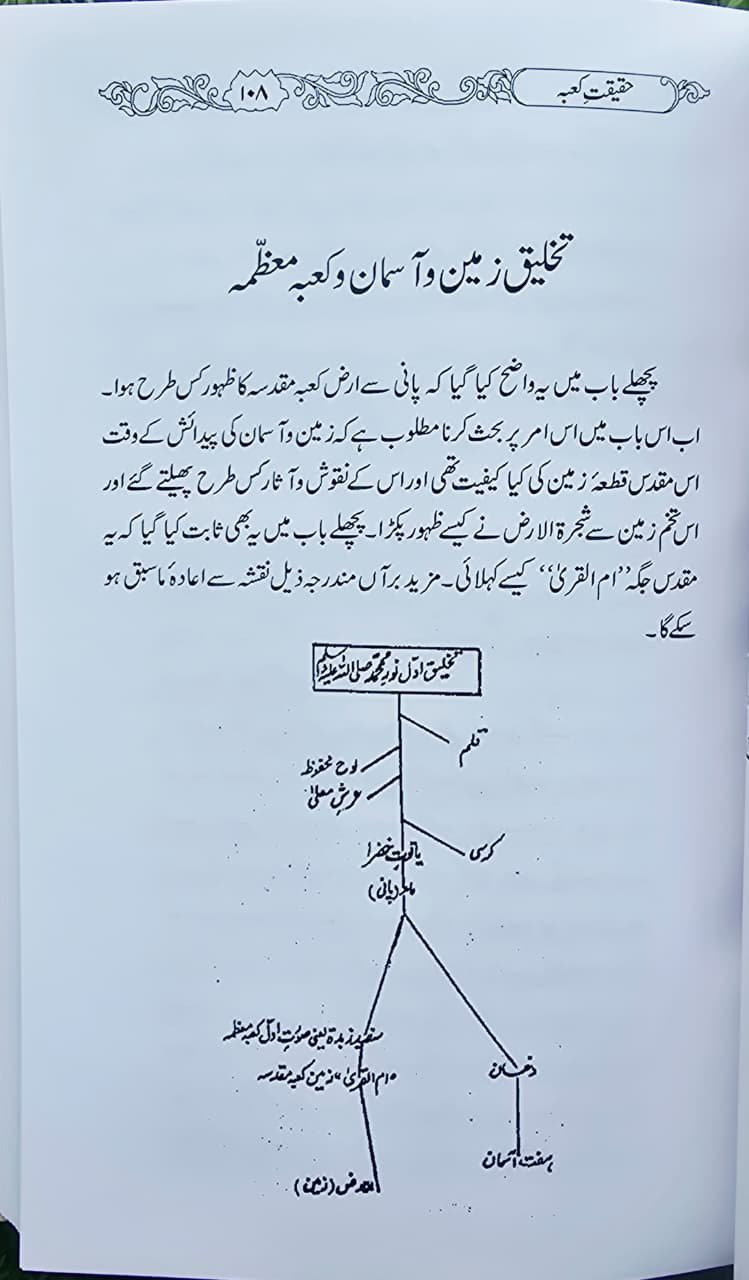 حقیقتِ کعبہ
۱۰۸
تخلیق زمین و آسمان و کعبہ معظّمہ
پچھلے باب میں یہ واضح کیا گیا کہ پانی سے ارض کعبہ مقدسہ کا ظہور کس طرح ہوا۔
اب اس باب میں اس امر پر بحث کرنا مطلوب ہے کہ زمین و آسمان کی پیدائش کے وقت
اس مقدس قطعۂ زمین کی کیا کیفیت تھی اور اس کے نقوش و آثار کس طرح پھیلتے گئے اور
اس تخم زمین سے شجرۃ الارض نے کیسے ظہور پکڑا۔ پچھلے باب میں یہ بھی ثابت کیا گیا کہ یہ
مقدس جگہ ’’ام القریٰ‘‘ کیسے کہلائی۔ مزید برآں مندرجہ ذیل نقشہ سے اعادۂ ماسبق ہو
سکے گا۔
تخلیق اوّل نورِ محمد صلی اللہ علیہ وسلم
قلم
لوح محفوظ
عرشِ معلیٰ
کرسی
یاقوتِ خضرا
ماء (پانی)
سفید زبدۃ یعنی صورتِ اوّل کعبہ معظمہ
"ام القریٰ" زمین کعبہ مقدسہ
دخان
ہفت آسمان
الارض (زمین)